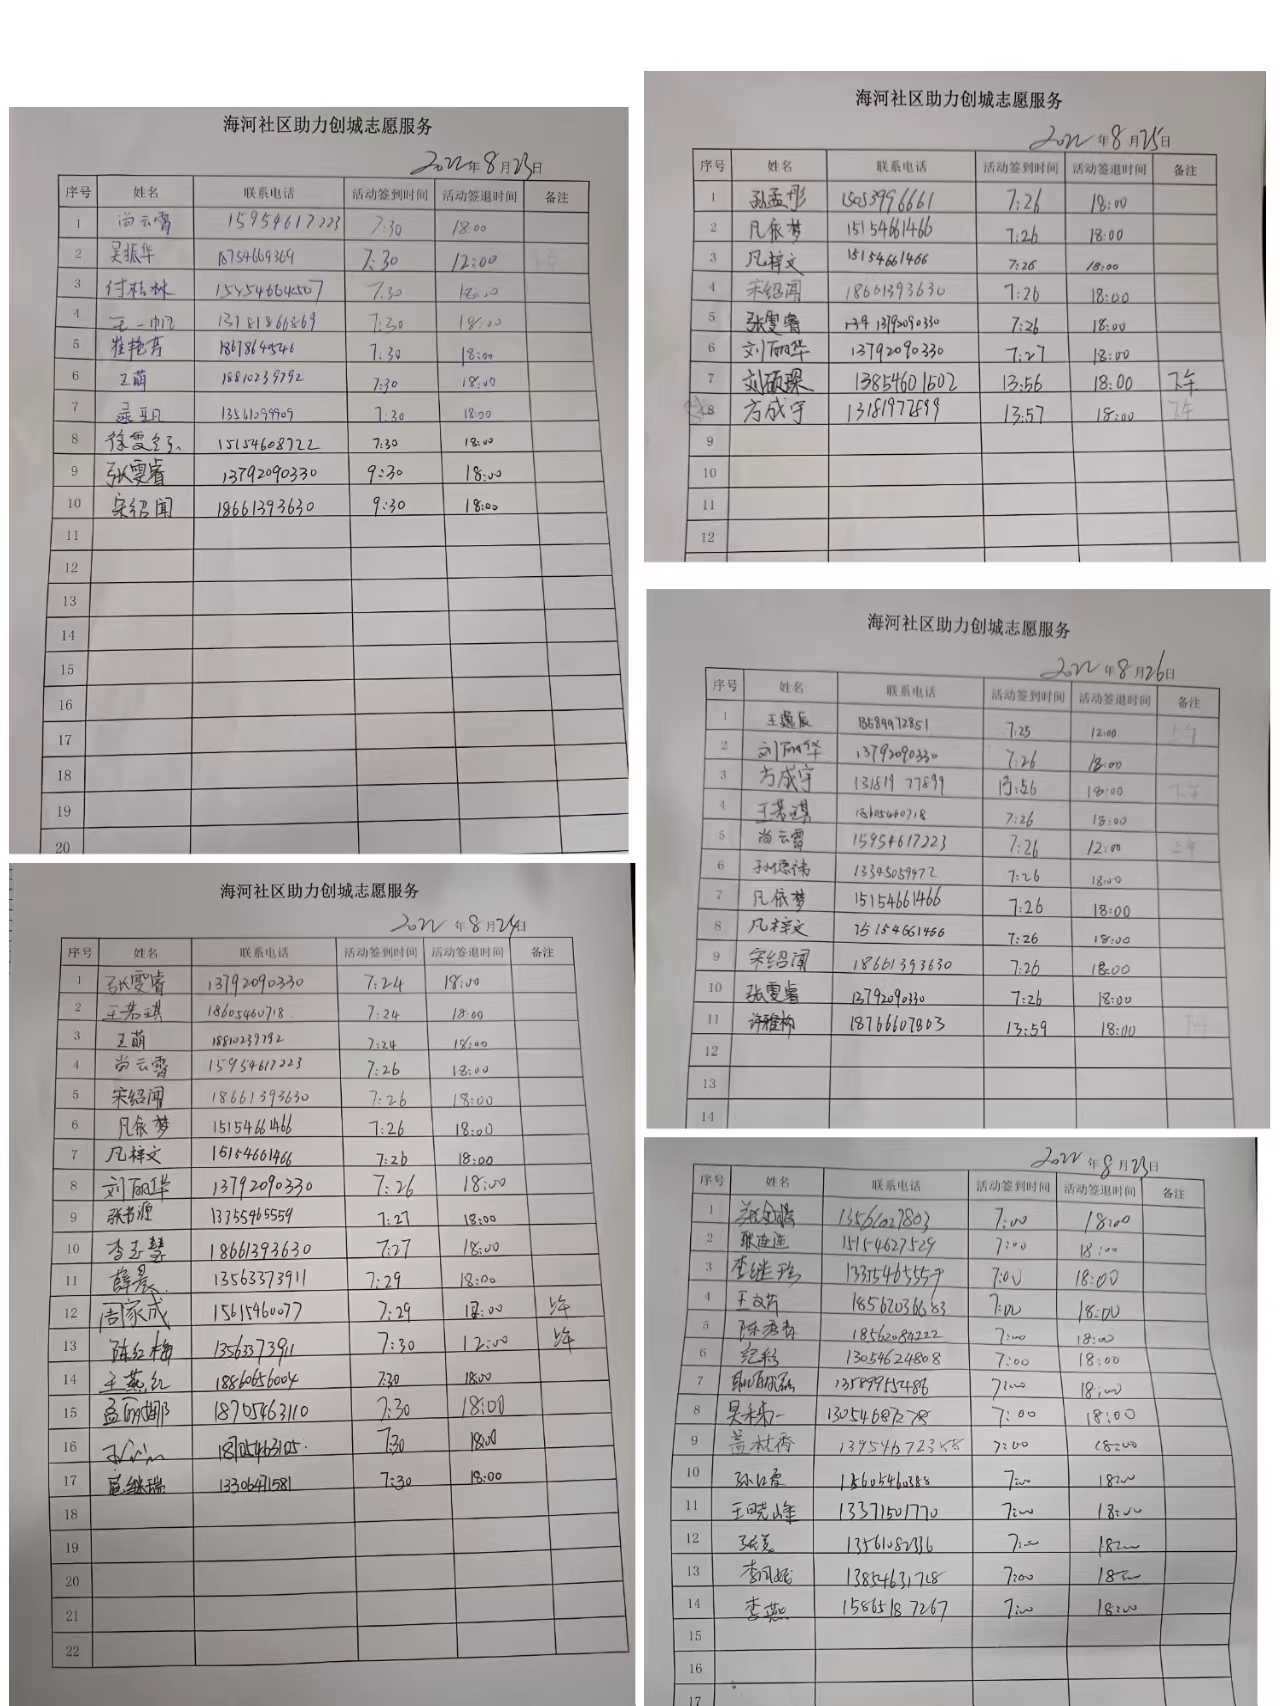 海河社区助力创城志愿服务
2022年8月23日
序号 姓名 联系电话 活动签到时间 活动签退时间 备注
1 尚云霄 15954617223 7:30 18:00
2 吴振华 18754669369 7:30 12:00
3 付桂林 15954664507 7:30 18:00
4 王一帆 13781866869 7:30 18:00
5 崔艳芳 18678640546 7:30 18:00
6 王萌 18810239792 7:30 18:00
7 13561099909 7:30 18:00
8 徐雯 15154608722 7:30 18:00
9 张雯睿 13792090330 9:30 18:00
10 宋绍闻 18661393630 9:30 18:00
11
12
13
14
15
16
17
18
19
20
海河社区助力创城志愿服务
2022年8月24日
序号 姓名 联系电话 活动签到时间 活动签退时间 备注
1 张雯睿 13792090330 7:24 18:00
2 王若琪 18605460718 7:24 18:00
3 王萌 18810239792 7:24 18:00
4 尚云霄 15954617223 7:26 18:00
5 宋绍闻 18661393630 7:26 18:00
6 凡依梦 15154661466 7:26 18:00
7 凡梓文 15154661466 7:26 18:00
8 刘丽华 13792090330 7:26 18:00
9 张书源 13355465559 7:27 18:00
10 李玉慧 18661393630 7:27 18:00
11 薛晨 13563373911 7:29 18:00
12 周家成 15615460077 7:29 12:00 上午
13 陈红梅 13563373911 7:30 12:00 上午
14 王燕红 18860656004 7:30 18:00
15 孟丽娜 18705463110 7:30 18:00
16 18705463105 7:30 18:00
17 扈继瑞 13306471581 7:30 18:00
18
19
20
21
22
海河社区助力创城志愿服务
2022年8月25日
序号 姓名 联系电话 活动签到时间 活动签退时间 备注
1 孙孟彤 15053996661 7:26 18:00
2 凡依梦 15154661466 7:26 18:00
3 凡梓文 15154661466 7:26 18:00
4 宋绍闻 18661393630 7:26 18:00
5 张雯睿 13792090330 7:26 18:00
6 刘丽华 13792090330 7:27 18:00
7 刘硕琛 13854601502 13:56 18:00 下午
8 方成宇 13181977899 13:57 18:00 下午
9
10
11
12
海河社区助力创城志愿服务
2022年8月26日
序号 姓名 联系电话 活动签到时间 活动签退时间 备注
1 王逸辰 13589972851 7:25 12:00 上午
2 刘丽华 13792090330 7:26 18:00
3 方成宇 13181977899 13:56 18:00 下午
4 王若琪 18605460718 7:26 18:00
5 尚云霄 15954617223 7:26 12:00 上午
6 孙德伟 13345059472 7:26 18:00
7 凡依梦 15154661466 7:26 18:00
8 凡梓文 15154661466 7:26 18:00
9 宋绍闻 18661393630 7:26 18:00
10 张雯睿 13792090330 7:26 18:00
11 许雅楠 18766607803 13:59 18:00 下午
12
13
14
2022年8月23日
序号 姓名 联系电话 活动签到时间 活动签退时间 备注
1 13561027803 7:00 18:00
2 耿连莲 15154627529 7:00 18:00
3 李继玲 13355465559 7:00 18:00
4 王文芳 18562036683 7:00 18:00
5 陈秀青 18562084222 7:00 18:00
6 纪彩 13054624808 7:00 18:00
7 13589955486 7:00 18:00
8 13054687278 7:00 18:00
9 盖桂香 7:00 18:00
10 孙红霞 15605460388 7:00 18:00
11 王晓峰 13371501770 7:00 18:00
12 张美 13561082336 7:00 18:00
13 13854631728 7:00 18:00
14 李燕 15865187267 7:00 18:00
15
16
17